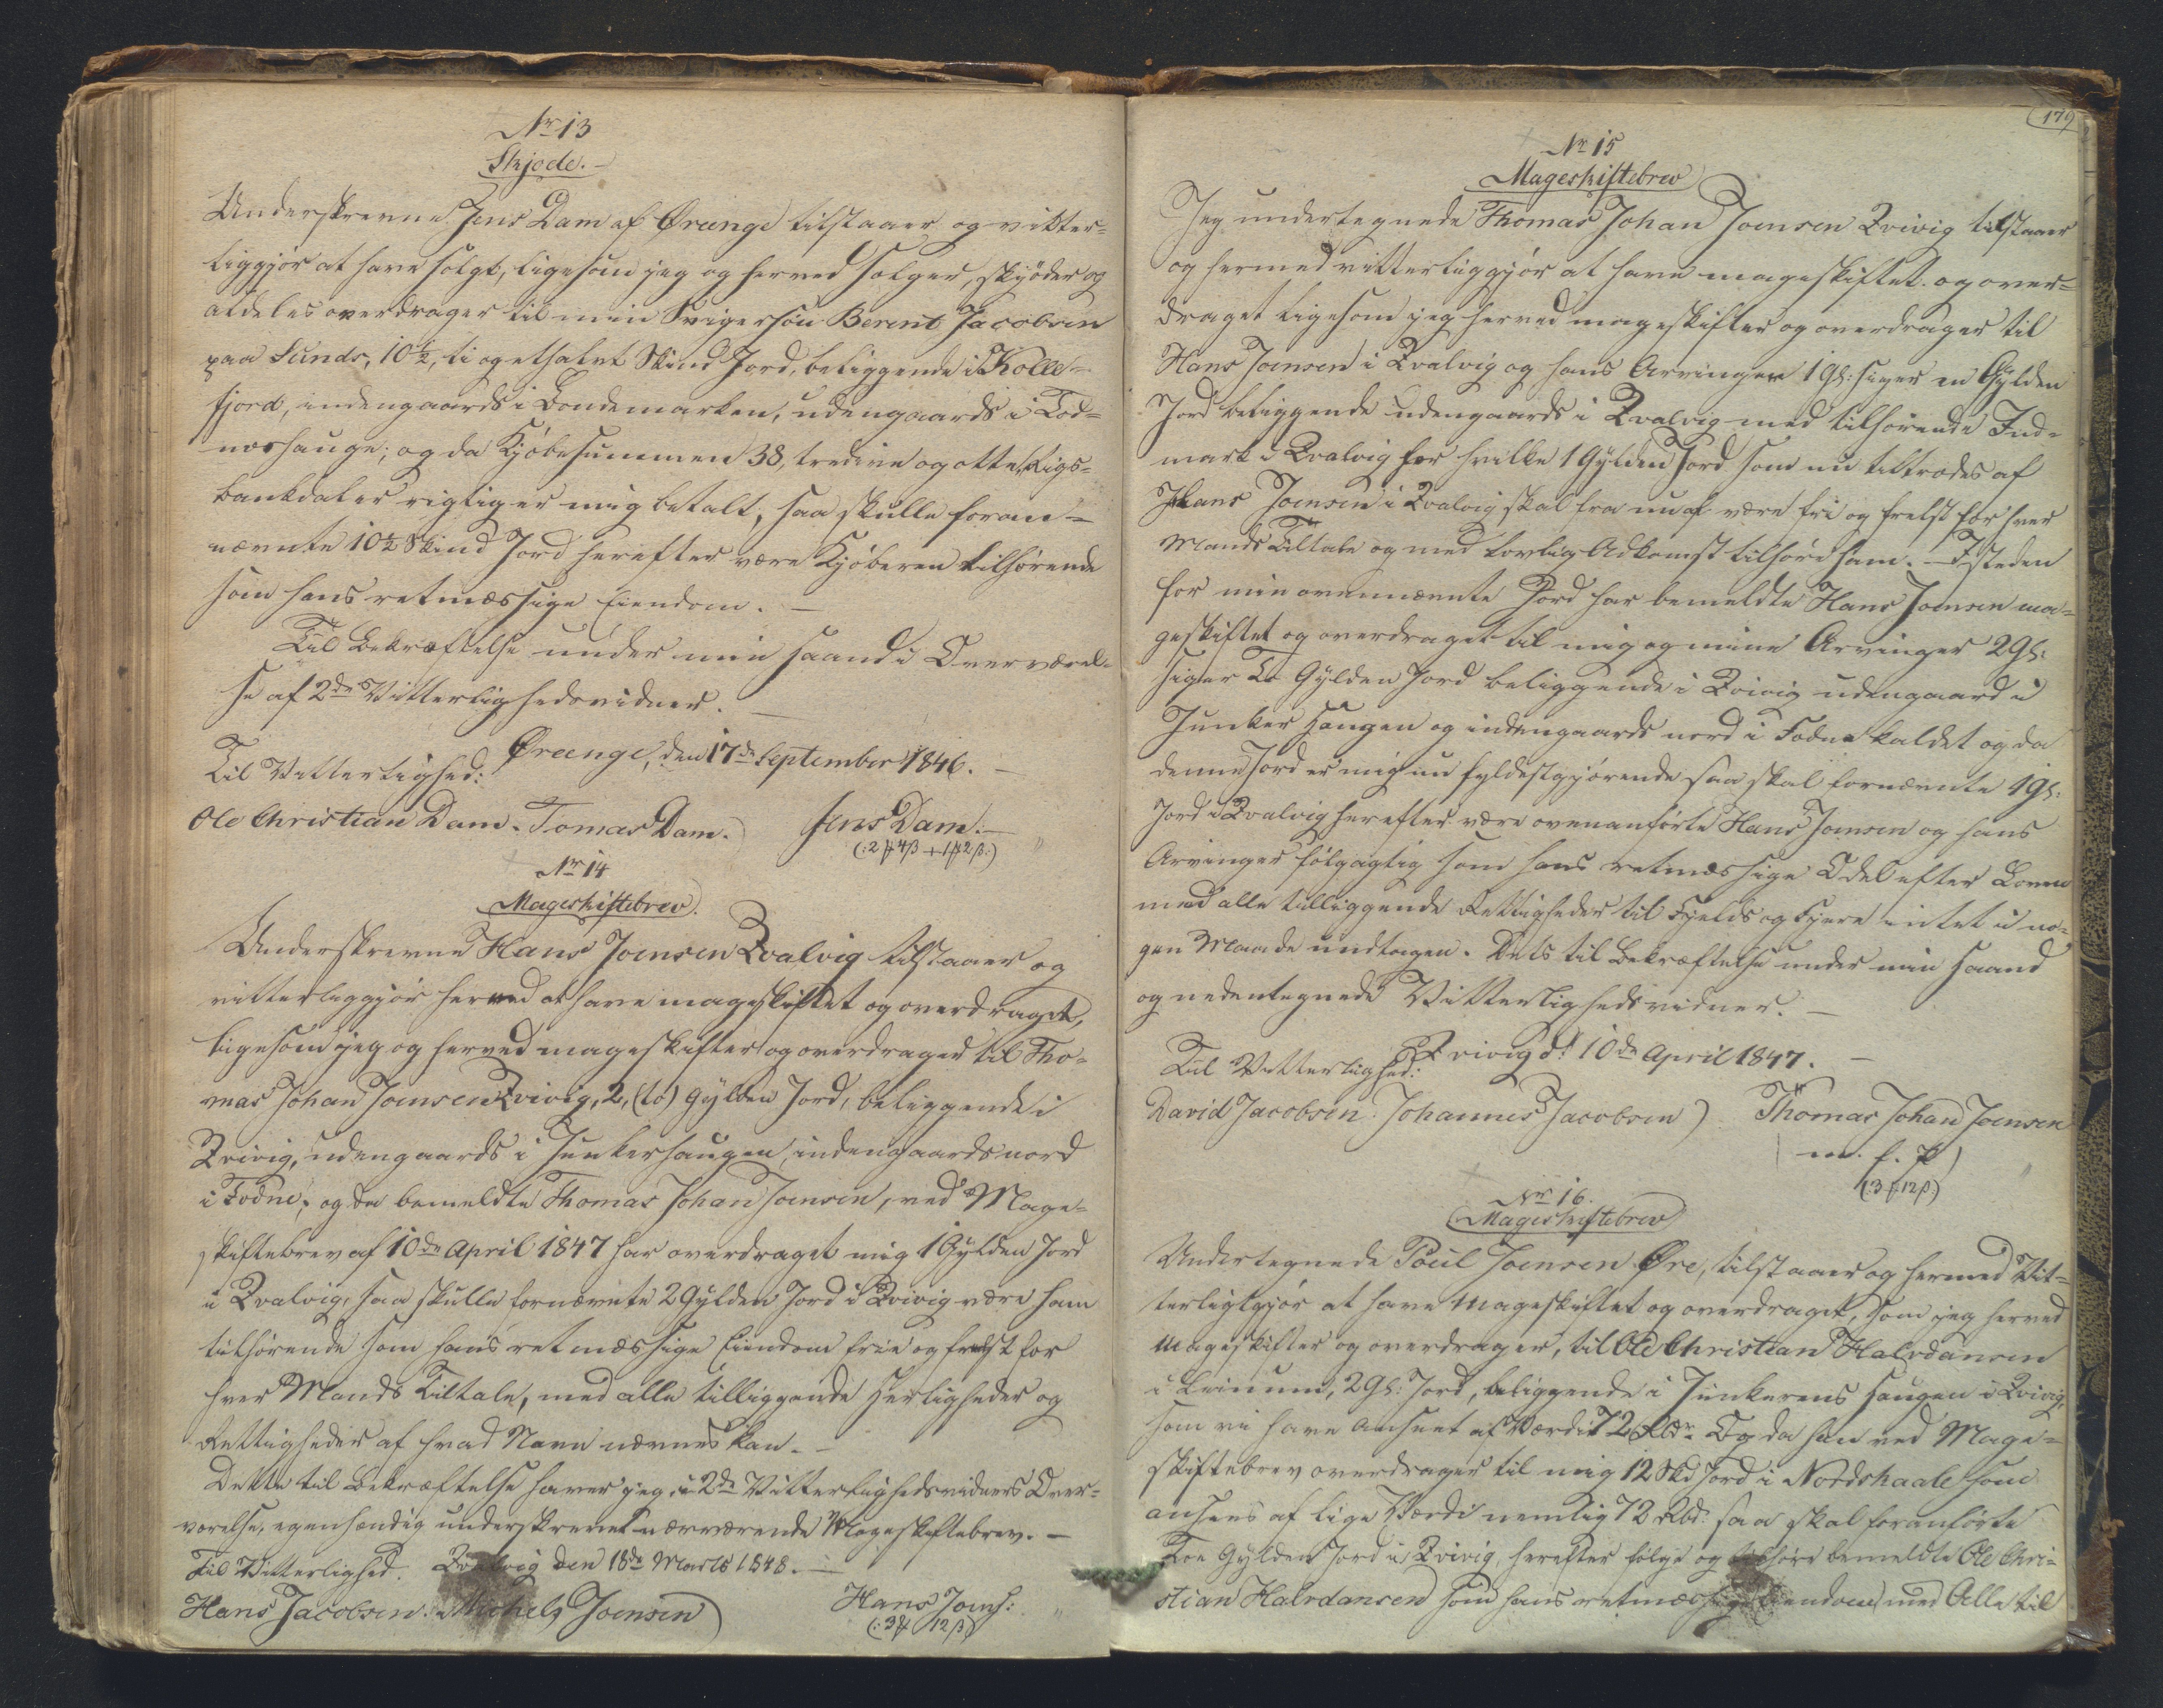 Nr 13
Skjøde.-
Underskrevne Jens Dam af Øreenge tilstaaer og vitter=
liggjør at have solgt, ligesom jeg og herved sælger, skjøder og
aldeles overdrager til min Svigersøn Berent Jacobsen
paa Sunds, 10½, ti og ethalvt Skind Jord, beliggende i Kolle=
fjord, indengaards i Bondemarken, udengaards i Tod=
næshauge; og da Kjøbesummen 38, tredive og otte Rigs=
bankdaler rigtig er mig betalt, saa skulle foran=
nævnte 10½ Skind Jord herefter være Kjøberen tilhørende
som hans retmæssige Eiendom. -
Til Bekræftelse under min Haand i Overværel=
se af 2de Vitterlighedsvidner. -
Øreenge, den 17de September 1846. -
Til Vitterlighed:
Ole Christian Dam. Tomas Dam. Jens Dam. -
(:2 # 4 β + 1 # 2 β:)
Nr 14
Mageskiftebrev.
Underskrevne Hans Joensen Qvalvig tilstaaer og
vitterliggjør herved at have mageskiftet og overdraget,
ligesom jeg og herved mageskifter og overdrager til Tho=
mas Johan Joensen Qvivig, 2, (to) Gylden Jord, beliggende i
Qvivig, udengaards i Junkerhaugen, indengaards nord
i Todne; og da bemeldte Thomas Johan Joensen, ved Mage=
skiftebrev af 10de April 1847 har overdraget mig 1 Gylden Jord
i Qvalvig, saa skulle fornævnte 2 Gylden Jord i Qvivig være ham
tilhørende som hans retmæssige Eiendom frie og frelst for
hver Mands Tiltale, med alle tilliggende Herligheder og
Rettigheder af hvad Navn nævnes kan. -
Dette til Bekræftelse haver jeg i 2de Vitterlighedsvidners Over=
værelse, egenhændig underskrevet nærværende Mageskiftebrev. -
Til Vitterlighed. Qvalvig den 18de Marts 1848. -
Hans Jacobsen. Michel Joensen Hans Joens:
(:3 # 12 β:)
179
Nr 15
Mageskiftebrev
Jeg undertegnede Thomas Johan Joensen Qvivig tilstaaer
og hermed vitterliggjør at have mageskiftet og over=
draget ligesom jeg herved mageskifter og overdrager til
Hans Joensen i Qvalvig og hans Arvinger 1 Gl: siger en Gylden
Jord beliggende udengaards i Qvalvig med tilhørende Ind=
mark i Qvalvig for hvilke 1 Gylden Jord som nu tiltrædes af
Hans Joensen i Qvalvig skal fra nu af være fri og frelst for hver
Mands Tiltale og med lovlig Adkomst tilhøre ham. - Isteden
for min ovennævnte Jord har bemeldte Hans Joensen ma=
geskiftet og overdraget til mig og mine Arvinger 2 Gl:
siger To Gylden Jord beliggende i Qvivig udengaard i
Junker Haugen og indengaards nord i Todne kaldet og da
denne Jord er mig nu fyldestgjørende saa skal fornævnte 1 Gl:
Jord i Qvalvig herefter være ovenanførte Hans Joensen og hans
Arvinger følgagtig som hans retmæssige Odel efter Loven
med alle tilliggende Rettigheder til Fjelds og Fjere intet i no=
gen Maade undtagen. Dets til Bekræftelse under min Haand
og nedentegnede Vitterlighedsvidner. -
Qvivig d: 10de April 1847. -
Til Vitterlighed:
David Jacobsen. Johannes Jacobsen) Thomas Johan Joensen
m. f. P.
(:3 # 12 β:)
Nr 16.
Mageskiftebrev
Undertegnede Poul Joensen Øre, tilstaaer og hermed Vit=
terligtgjør at have Mageskiftet og overdraget, som jeg herved
Mageskifter og overdrager, til Ole Christian Halvdansen
i Leinum, 2 Gl: Jord, beliggende i Junkerens Haugen i Qvivig,
som vi have Anseet af Værdi 72 Rbdr. Og da han ved Mage=
skiftebrev overdrager til mig 12 Skd Jord i Nordskaale som
ansees af lige Værdi nemlig 72 Rbd: saa skal foranførte
Toe Gylden Jord i Qvivig, herefter følge og tilhøre bemeldte Ole Chri=
stian Halvdansen som hans retmæssige Eiendom med Alle til